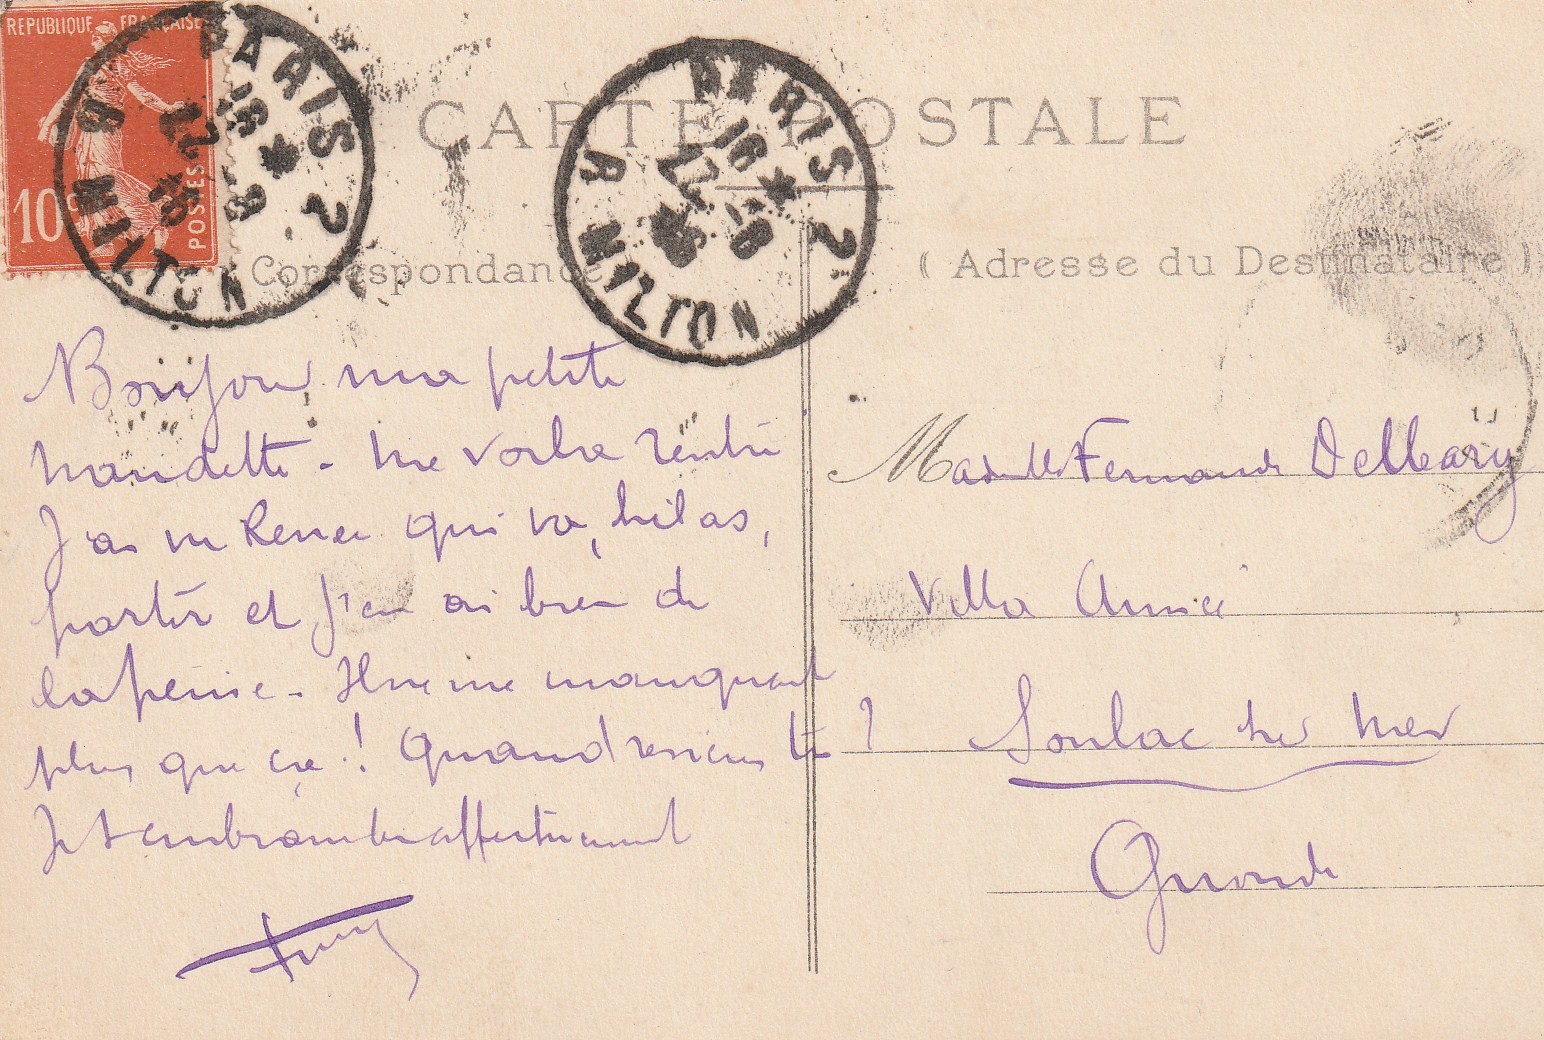 REPUBLIQUE FRANÇAISE
10c
POSTES
PARIS 2
R MILTON
16 * 
22 -8
CARTE POSTALE
PARIS 2
R MILTON
16 *
22 -8
Correspondance
( Adresse du Destinataire )
Bonjour ma petite
nandette - me voilà rentré
J'ai vu Renée qui va, hélas,
partir et j'en ai bien de
la peine - Il ne me manquait
plus que ça ! Quand reviens tu ?
Je t'embrasse affectueusement
Mademlle Fernande Delleary
Villa Aimée
Soulac sur Mer
Gironde